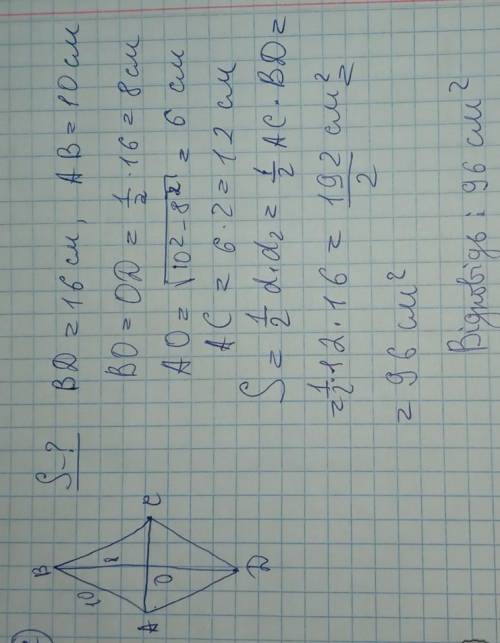 B
10
8
A
O
C
D
S - ?
BD = 16 см, AB = 10 см
BO = OD = 1/2 · 16 = 8 см
AO = √10² - 8² = 6 см
AC = 6 · 2 = 12 см
S = 1/2 d₁d₂ = 1/2 AC · BD =
= 1/2 · 12 · 16 = 192/2 см² =
= 96 см²
Відповідь: 96 см²